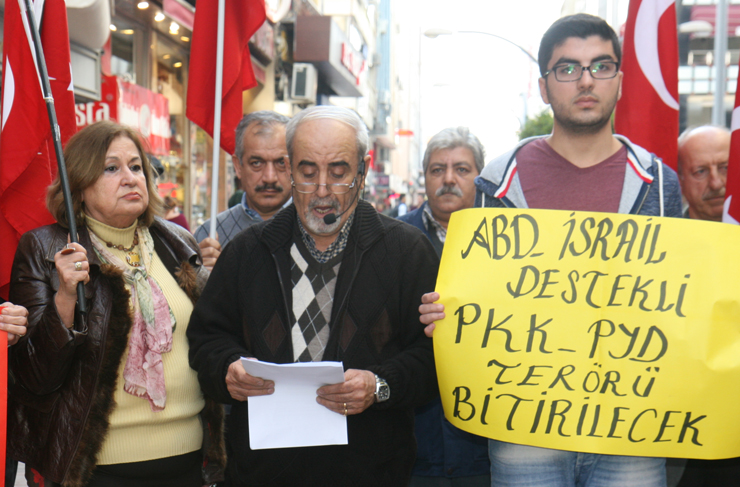 ABD_ İSRAİL
DESTEKLİ
PKK_PYD
TERÖRÜ
BİTİRİLECEK